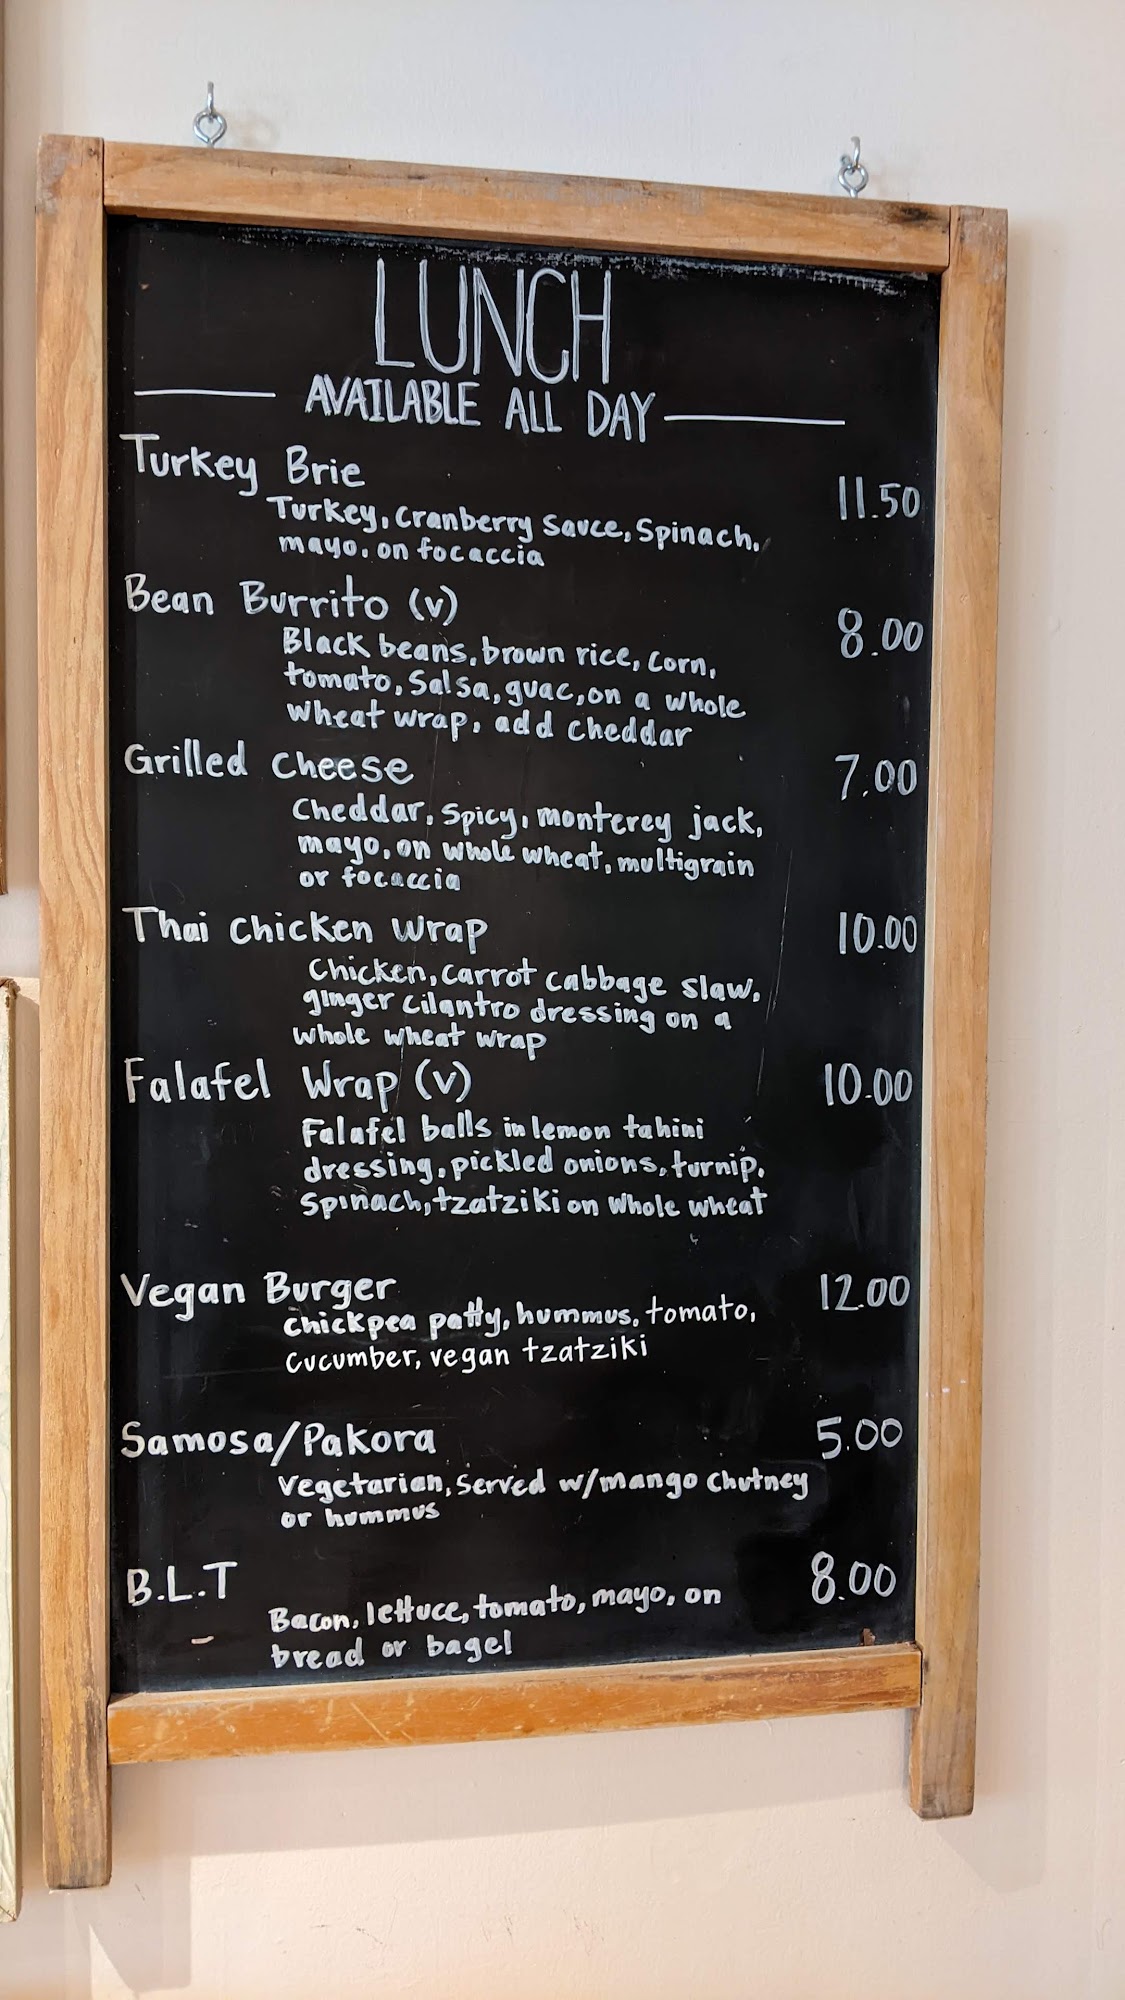 LUNCH
AVAILABLE ALL DAY
Turkey Brie 11.50
Turkey, cranberry sauce, spinach,
mayo, on focaccia
Bean Burrito (v) 8.00
Black beans, brown rice, corn,
tomato, salsa, guac, on a whole
wheat wrap, add cheddar
Grilled Cheese 7.00
Cheddar, spicy, monterey jack,
mayo, on whole wheat, multigrain
or focaccia
Thai Chicken Wrap 10.00
Chicken, carrot cabbage slaw,
ginger cilantro dressing on a
whole wheat wrap
Falafel Wrap (v) 10.00
Falafel balls in lemon tahini
dressing, pickled onions, turnip,
spinach, tzatziki on whole wheat
Vegan Burger 12.00
chickpea patty, hummus, tomato,
cucumber, vegan tzatziki
Samosa/Pakora 5.00
Vegetarian, served w/mango chutney
or hummus
B.L.T 8.00
Bacon, lettuce, tomato, mayo, on
bread or bagel